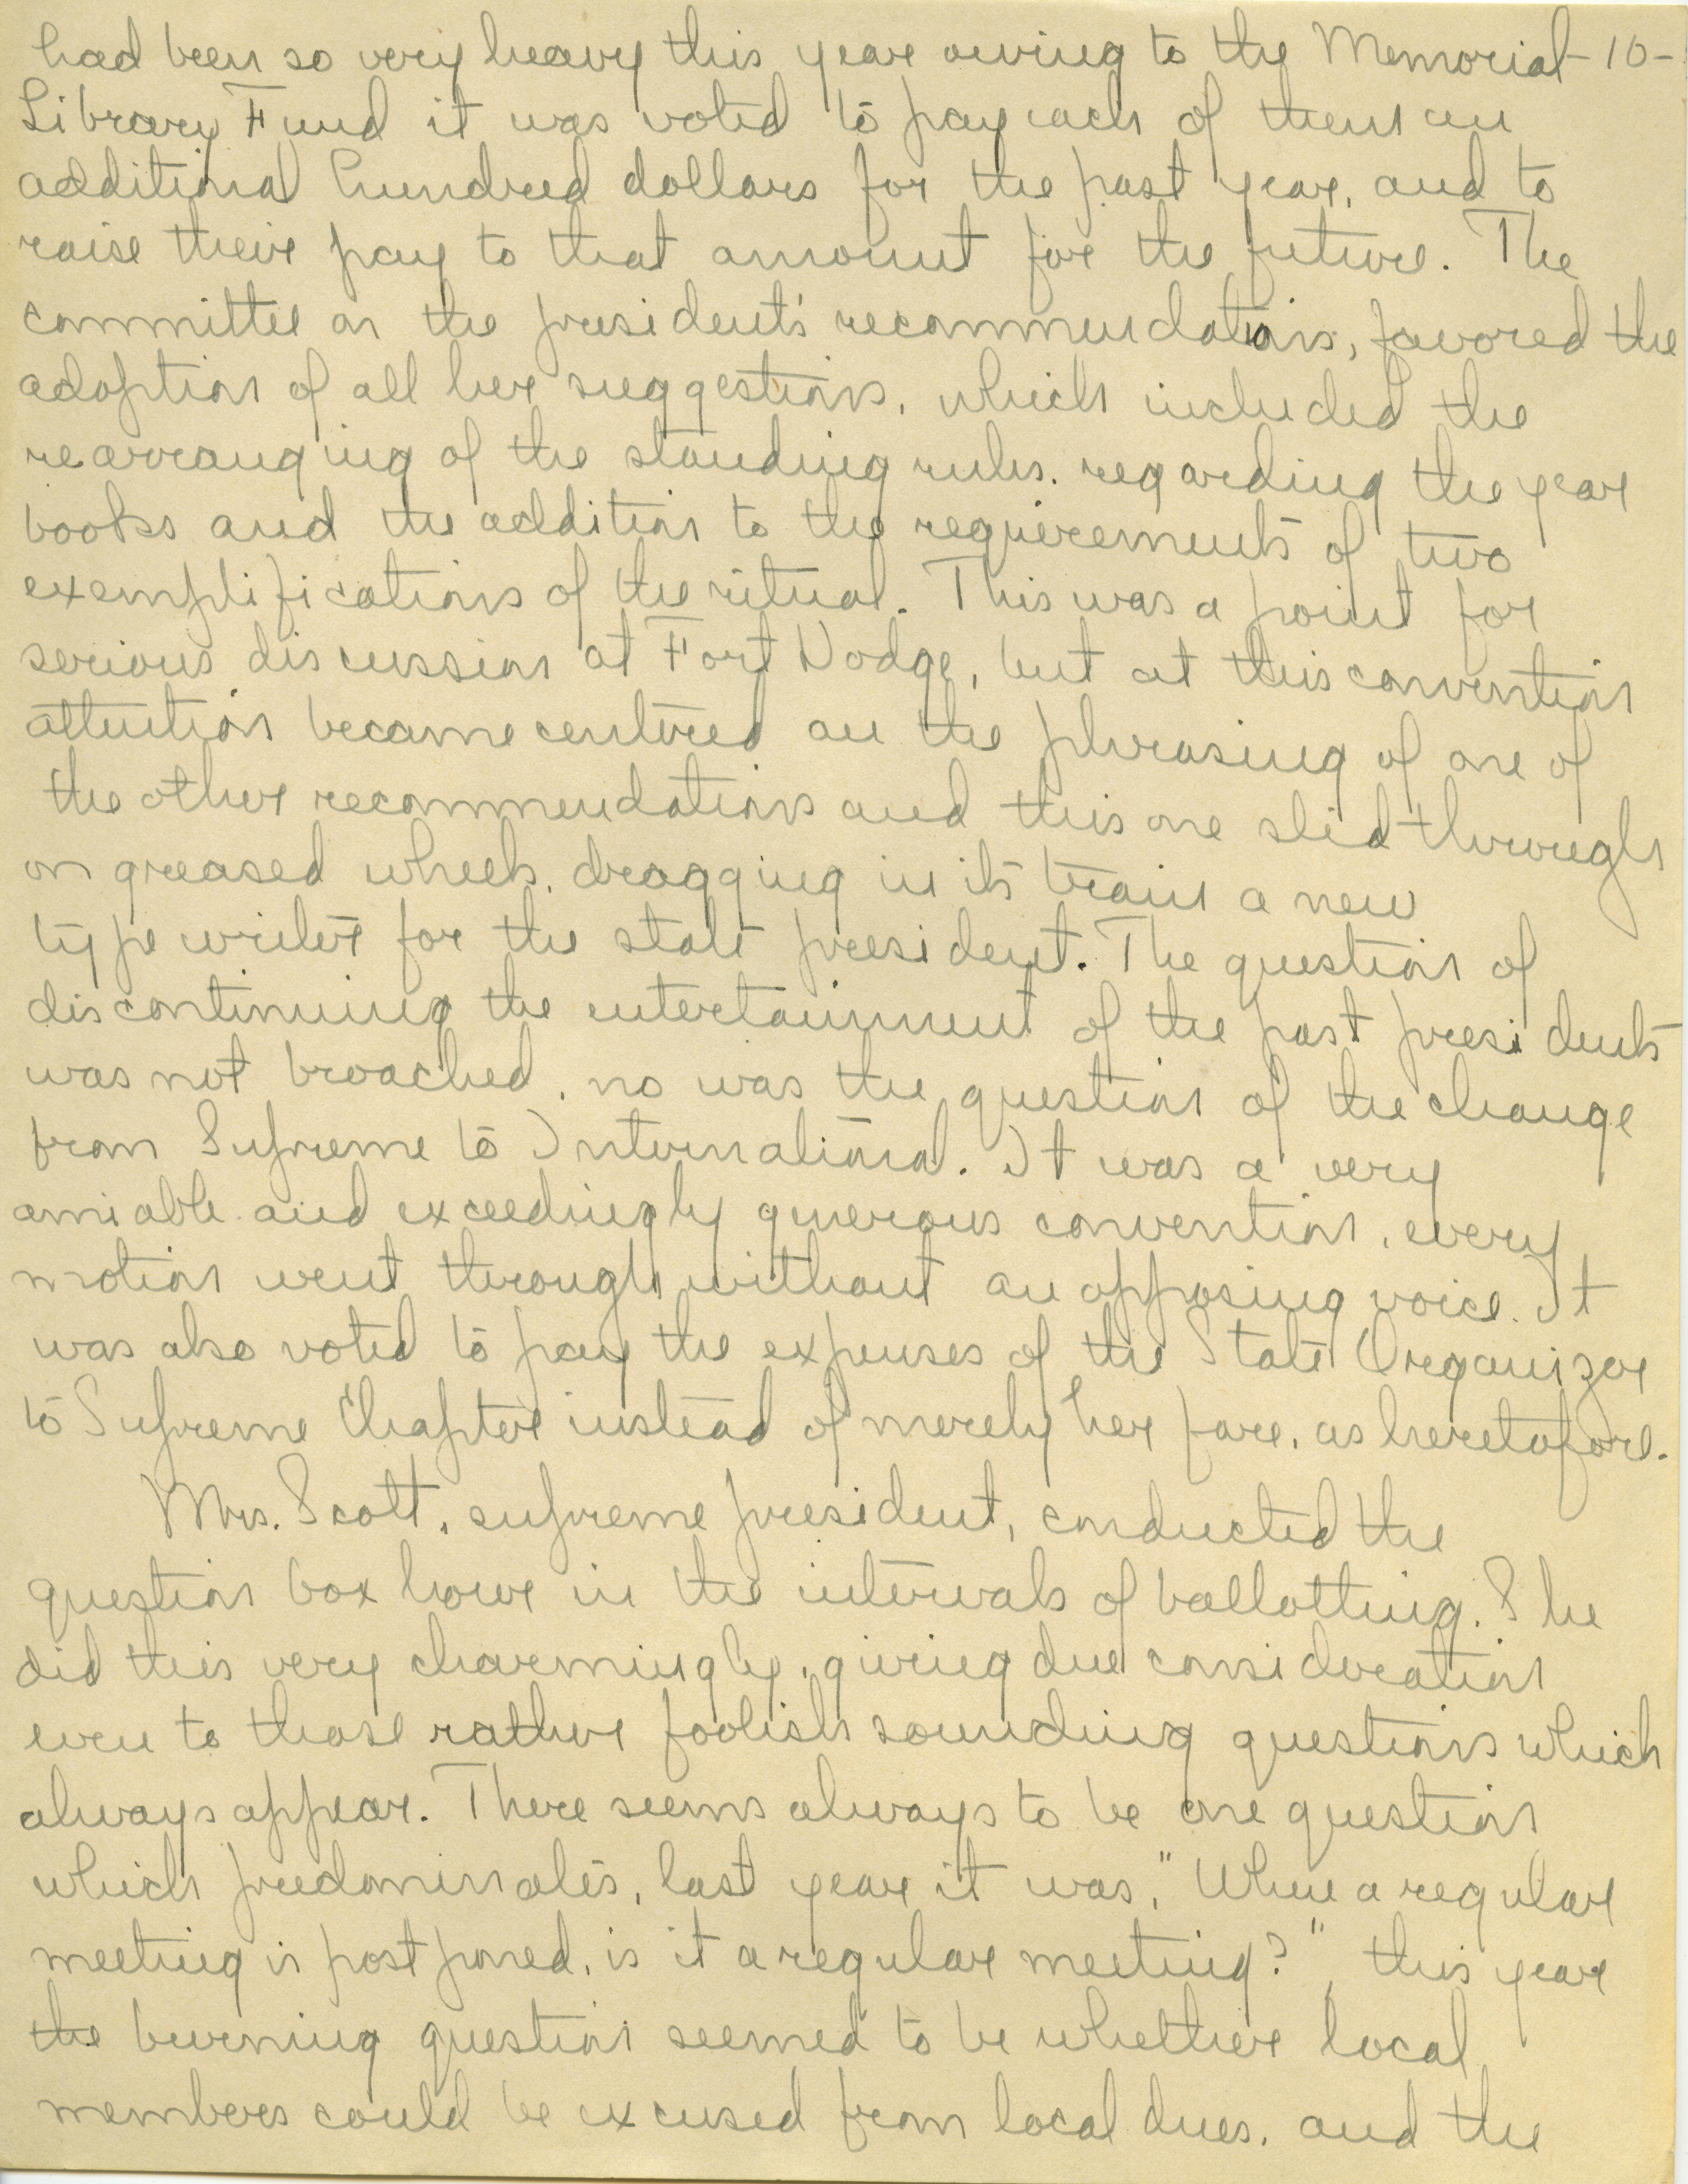 had been so very heavy this year owing to the Memorial -10-
Library Fund it was voted to pay each of them an
additional hundred dollars for the past year, and to
raise their pay to that amount for the future. The
committee on the president's recommendations, favored the
adoption of all her suggestions, which included the
rearranging of the standing rules, regarding the year
books and the addition to the requirements of two
exemplifications of the ritual. This was a point for
serious discussion at Fort Dodge, but at this convention
attention became centered on the phrasing of one of
the other recommendations and this one slid through
on greased wheels, dragging in its train a new
type writer for the state president. The question of
discontinuing the entertainment of the past presidents
was not broached, no was the question of the change
from Supreme to International. It was a very
amiable and exceedingly generous convention, every
motion went through without an opposing voice. It
was also voted to pay the expenses of the State Organizer
to Supreme Chapter instead of merely her fare, as heretofore.
Mrs. Scott, supreme president, conducted the
question box hour in the intervals of ballotting. She
did this very charmingly, giving due consideration
even to those rather foolish sounding questions which
always appear. There seems always to be one question
which predominates, last year it was, "When a regular
meeting is postponed, is it a regular meeting?", this year
the burning question seemed to be whether local
members could be excused from local dues, and the